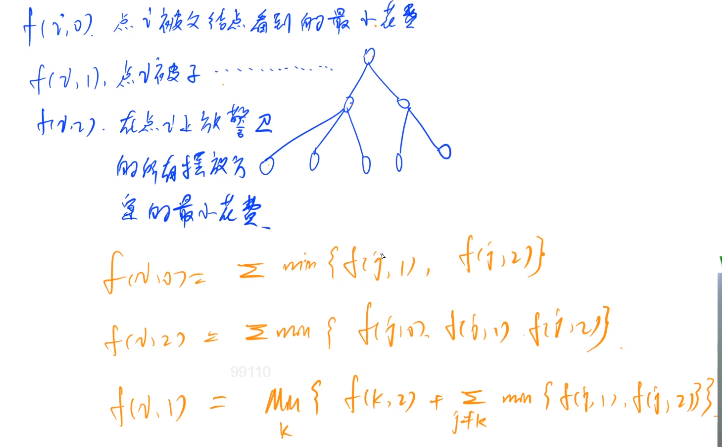 f(i,0). 点i被父结点看到的最小花费
f(i,1), 点i被子…………
f(i,2). 在点i上放警卫
的所有摆放方
案的最小花费.
f(i,0) = Σ min{f(j,1), f(j,2)}
f(i,2) = Σ min{ f(j,0), f(j,1) f(j,2)}.
99110
f(i,1) = Min{ f(k,2) + Σ min{f(j,1), f(j,2)}}
k j≠k